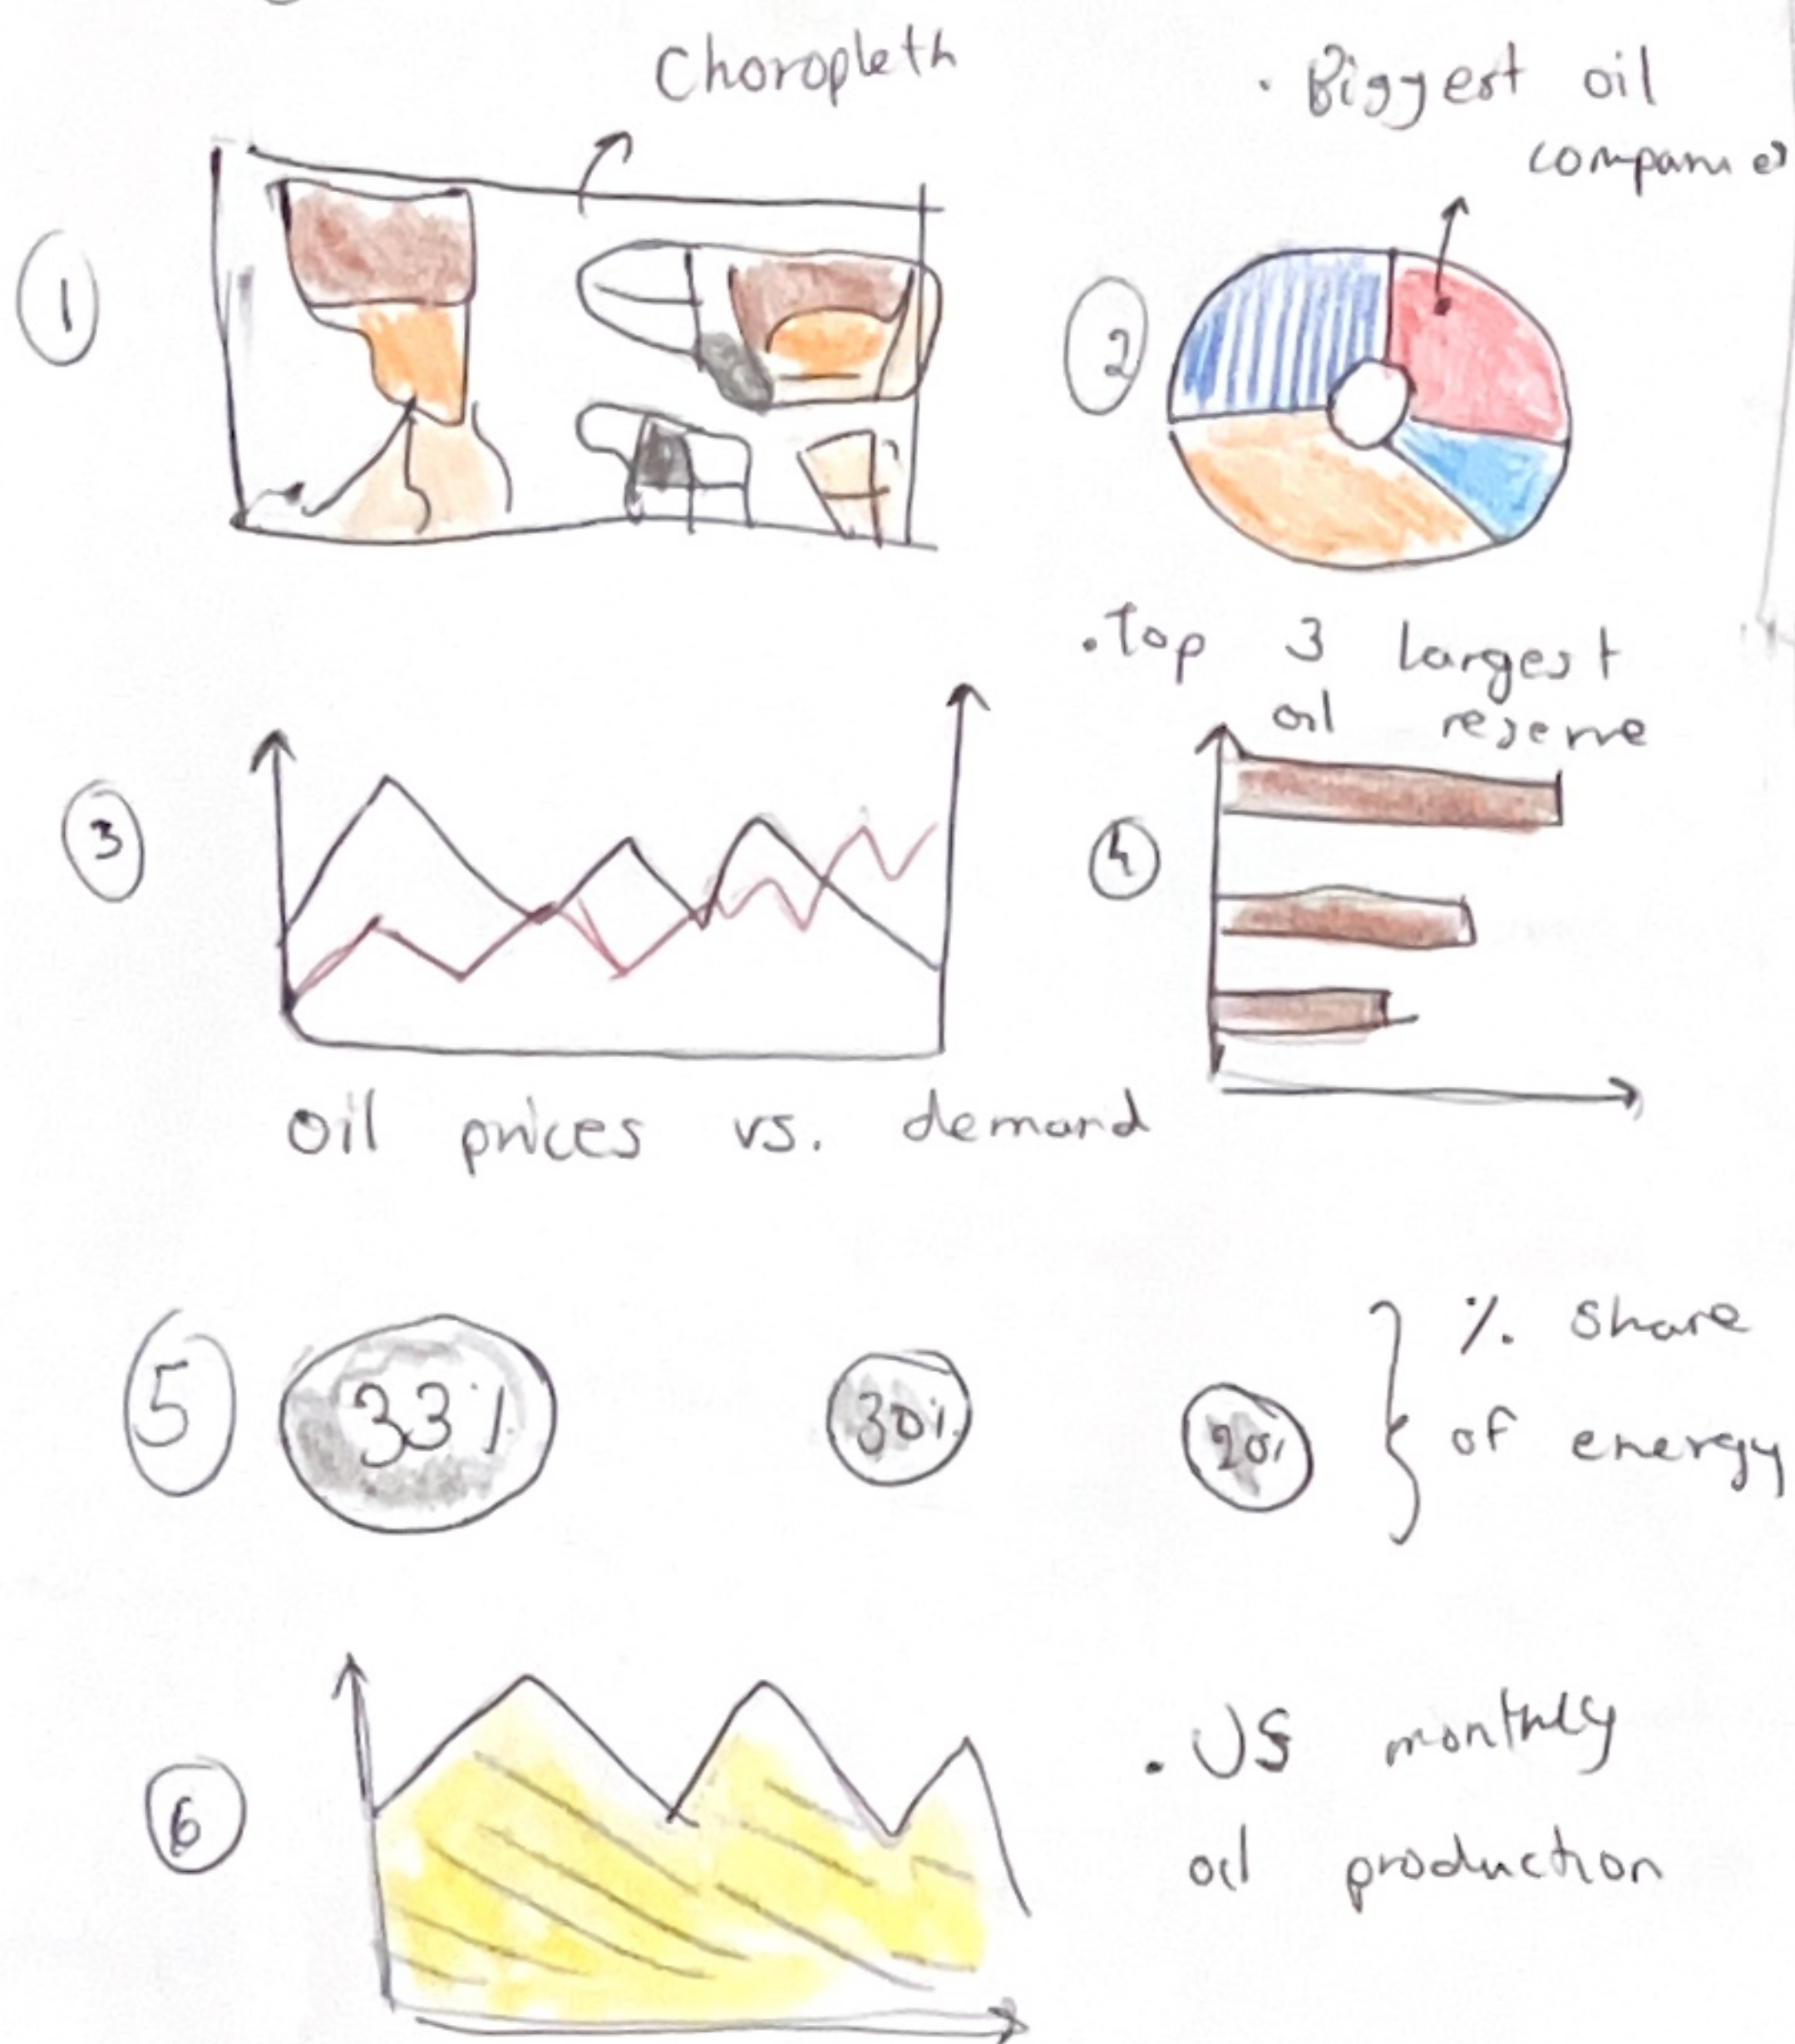 Choropleth
1
· Biggest oil
companies
2
· Top 3 largest
oil reserve
3
4
Oil prices vs. demand
5
33%
30%
20%
% share
of energy
6
· US monthly
oil production